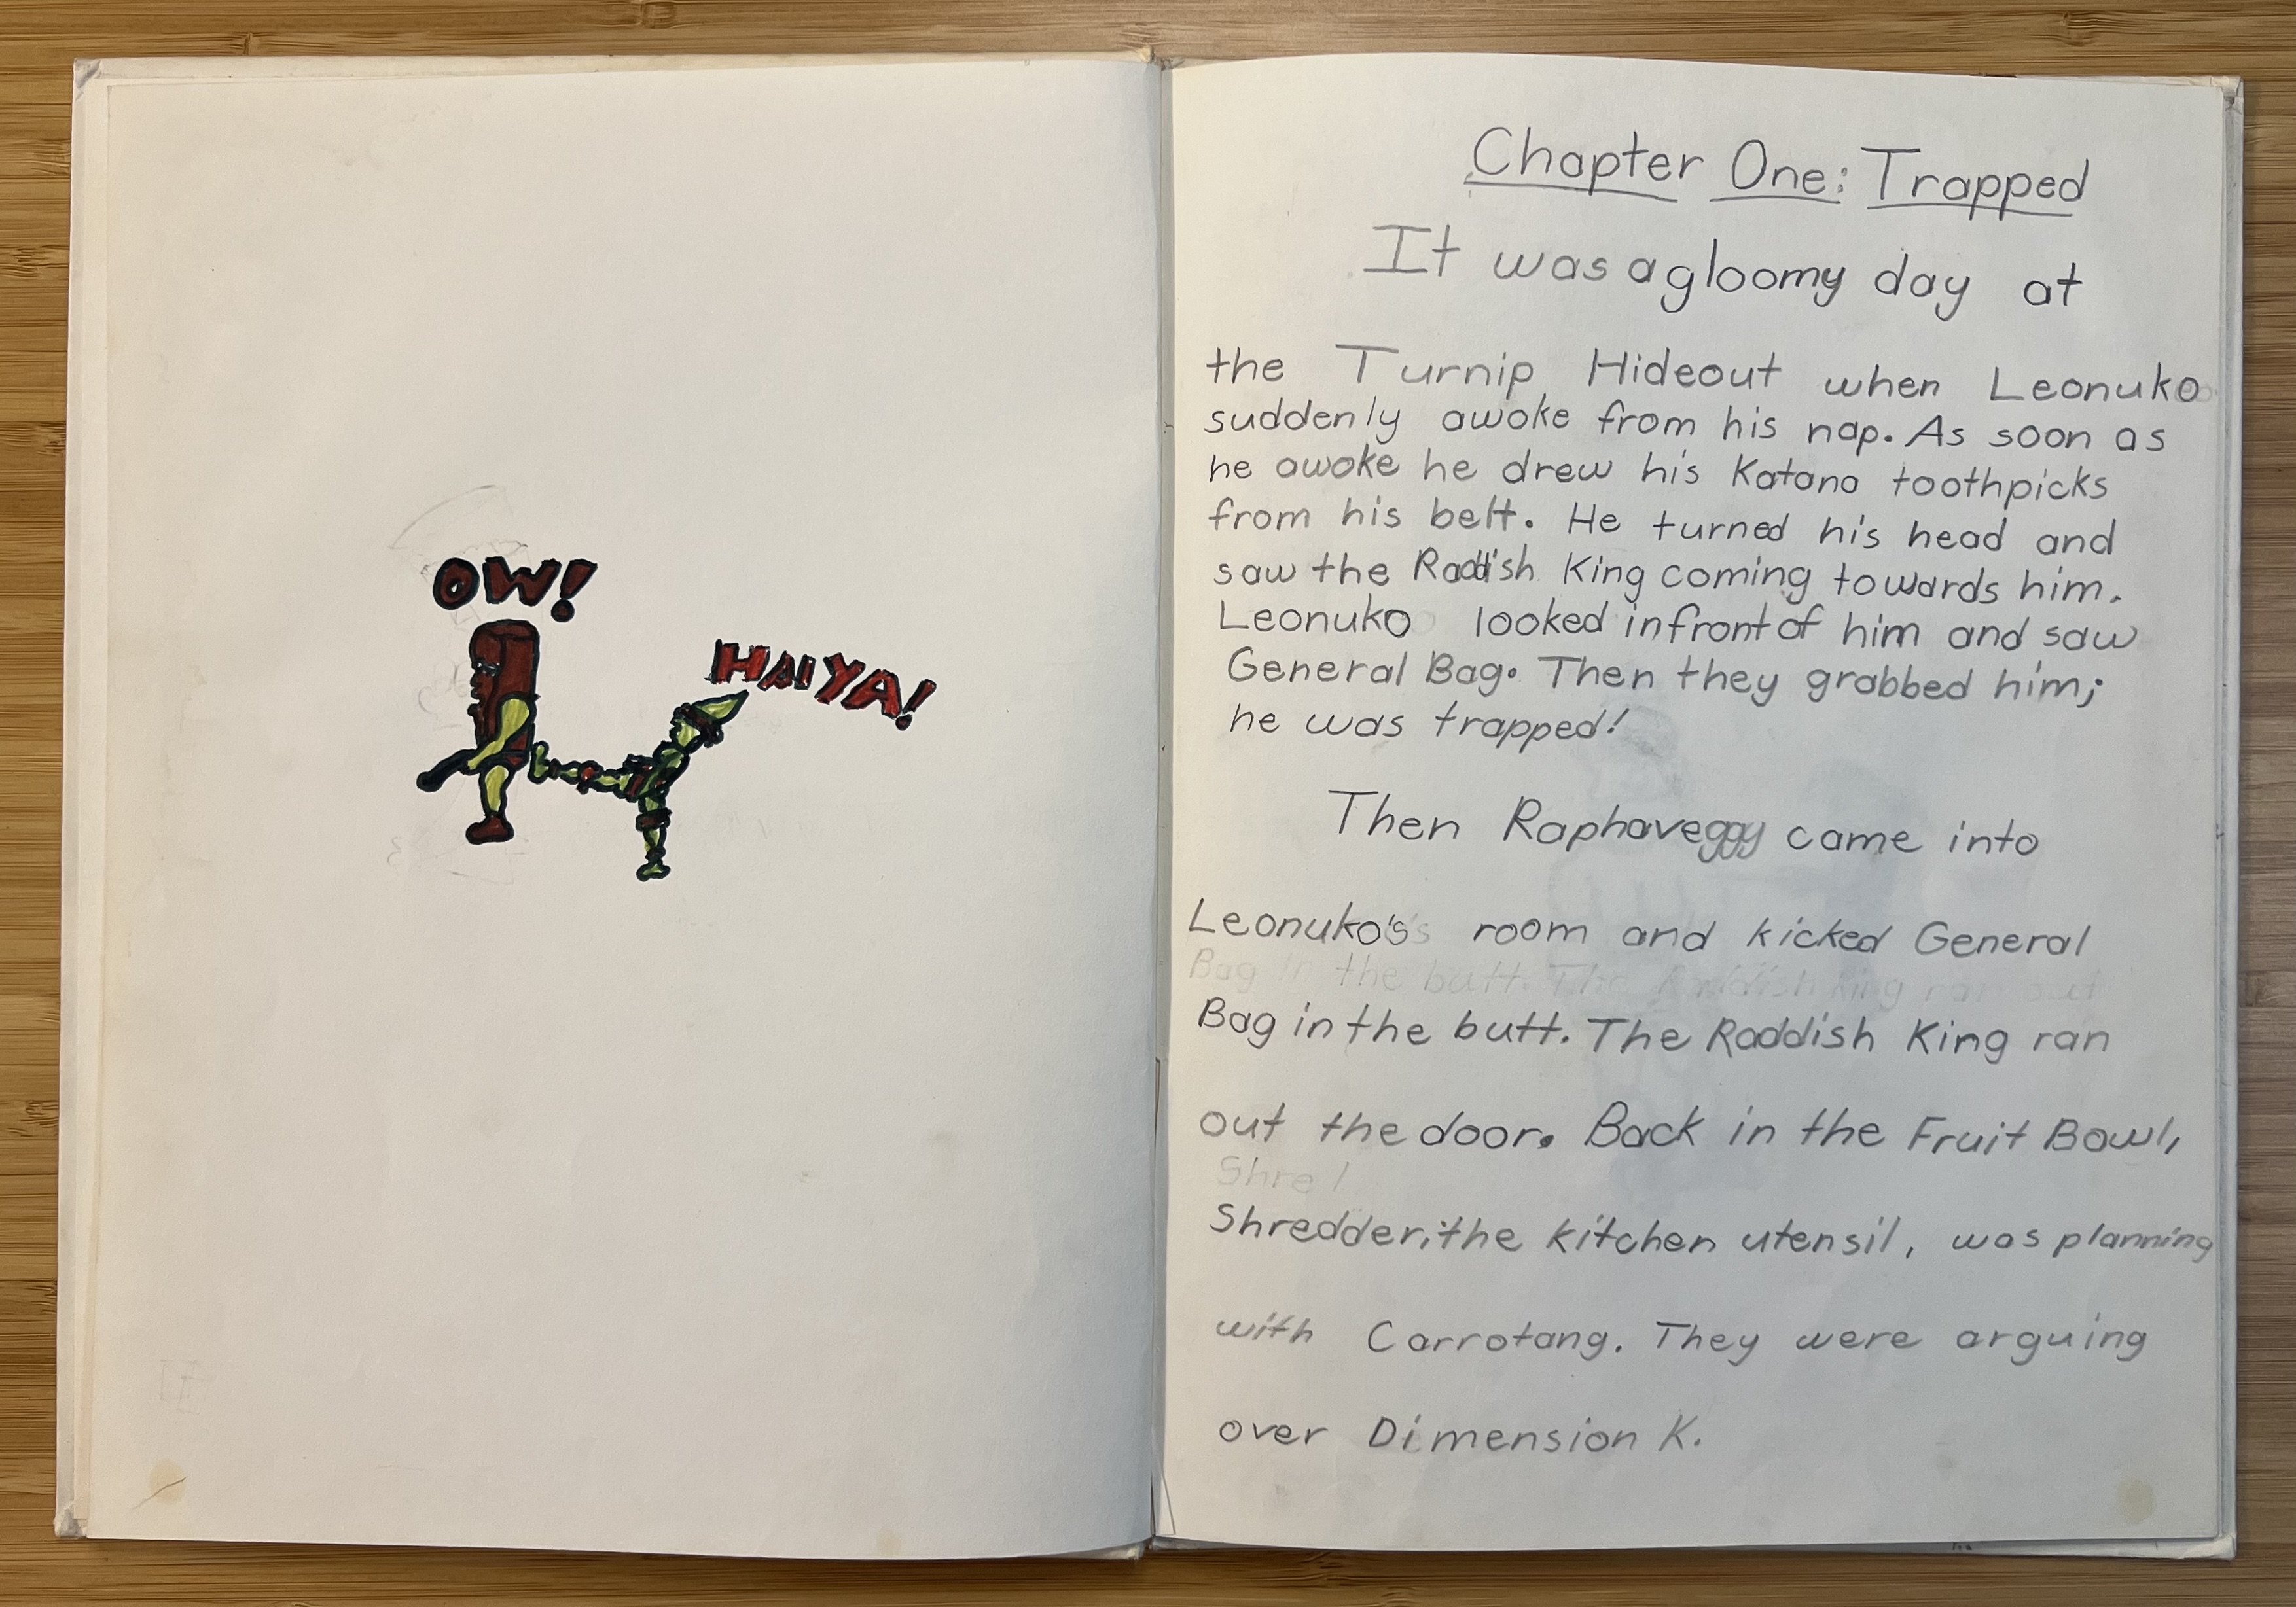 OW!
HAIYA!
Chapter One: Trapped
It was a gloomy day at
the Turnip Hideout when Leonuko
suddenly awoke from his nap. As soon as
he awoke he drew his Katana toothpicks
from his belt. He turned his head and
saw the Raddish King coming towards him.
Leonuko looked infront of him and saw
General Bag. Then they grabbed him;
he was trapped!
Then Raphaveggy came into
Leonuko's room and kicked General
Bag in the butt. The Raddish King ran out
Bag in the butt. The Raddish King ran
out the door. Back in the Fruit Bowl,
Shre
Shredder, the kitchen utensil, was planning
with Carrotang. They were arguing
over Dimension K.